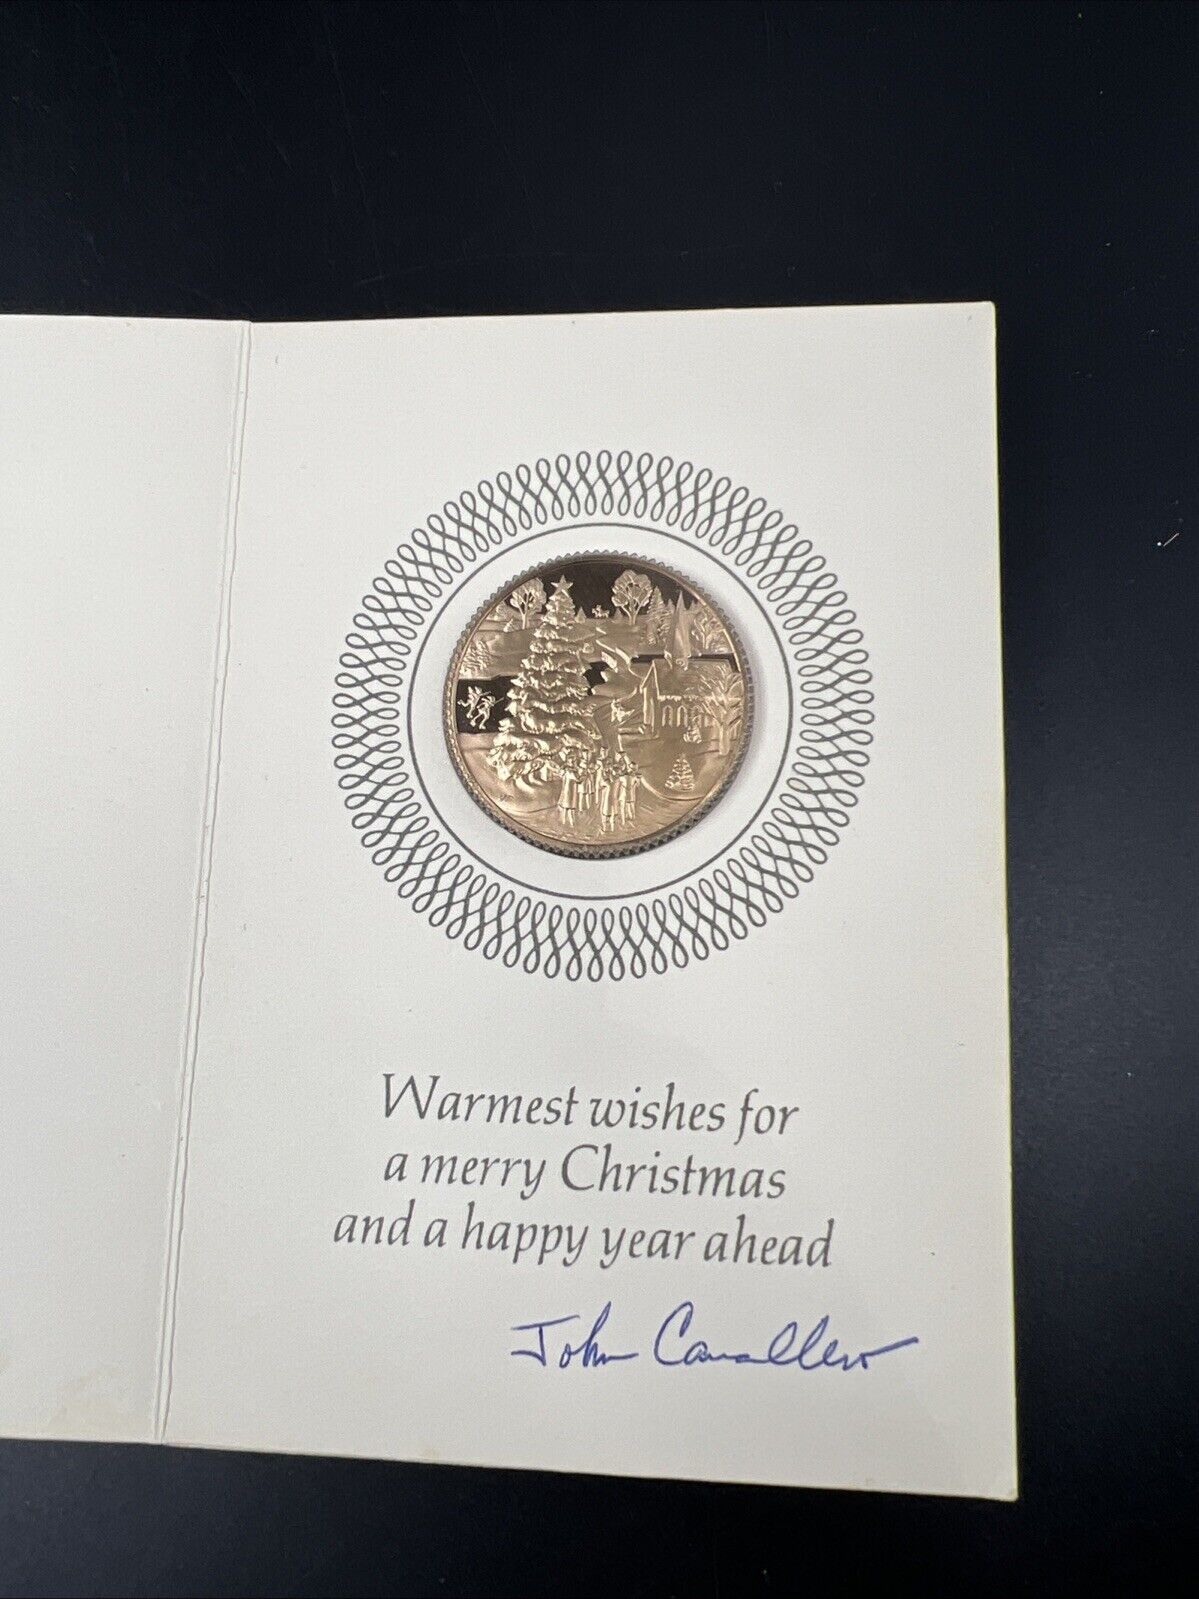 Warmest wishes for
a merry Christmas
and a happy year ahead
John Cavallero